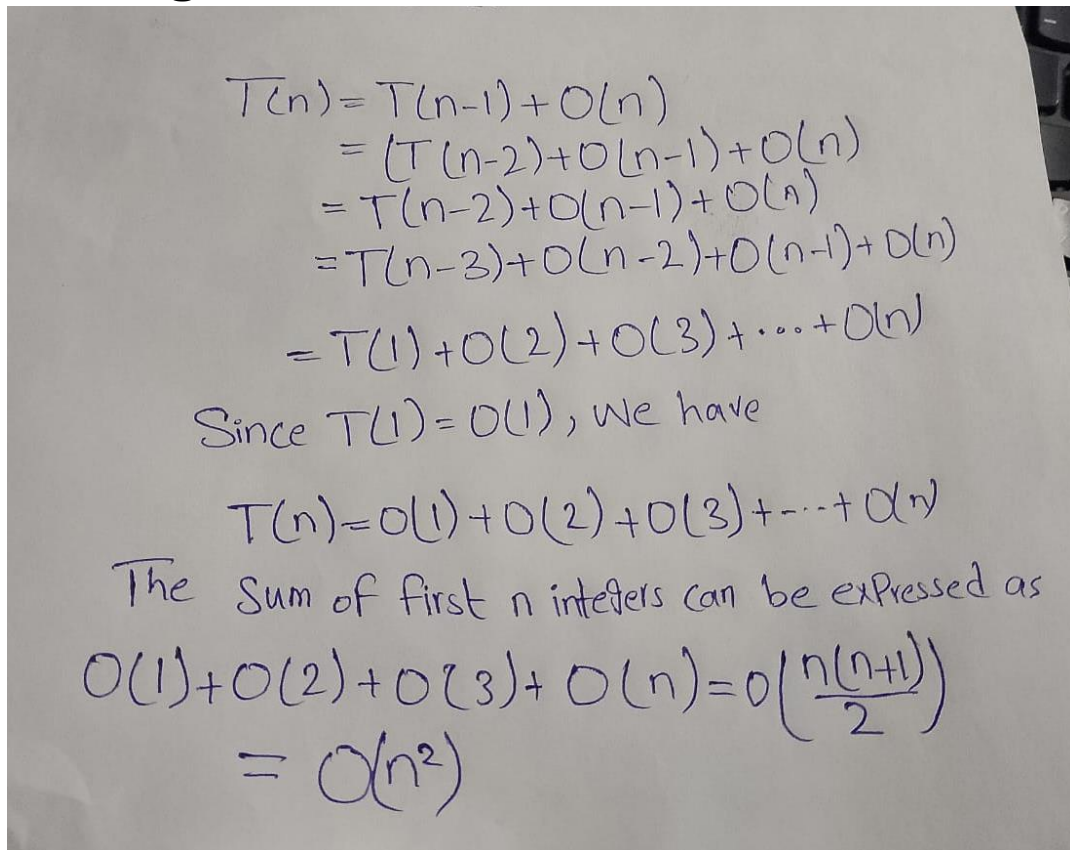 T(n) = T(n-1) + O(n)
= (T(n-2)+O(n-1)+O(n)
= T(n-2)+O(n-1)+O(n)
= T(n-3)+O(n-2)+O(n-1)+O(n)
= T(1)+O(2)+O(3)+....+O(n)
Since T(1)=O(1), we have
T(n)=O(1)+O(2)+O(3)+----+O(n)
The Sum of first n integers can be expressed as
O(1)+O(2)+O(3)+ O(n)=O(n(n+1)/2)
= O(n²)